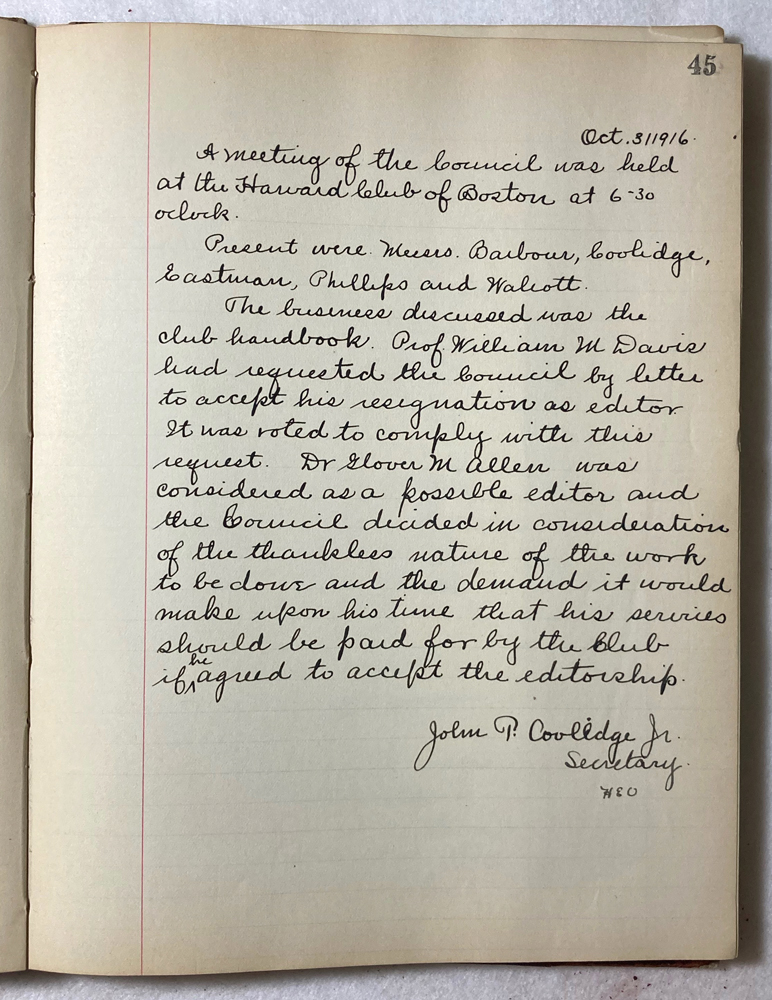 45
Oct. 31 1916.
A meeting of the Council was held
at the Harvard Club of Boston at 6-30
oclock.
Present were. Messrs. Barbour, Coolidge,
Eastman, Phillips and Walcott.
The business discussed was the
club handbook. Prof. William M Davis
had requested the Council by letter
to accept his resignation as editor
It was voted to comply with this
request. Dr Glover M Allen was
considered as a possible editor and
the Council decided in consideration
of the thankless nature of the work
to be done and the demand it would
make upon his time that his services
should be paid for by the Club
if he agreed to accept the editorship.
John P. Coolidge Jr.
Secretary.
HEO